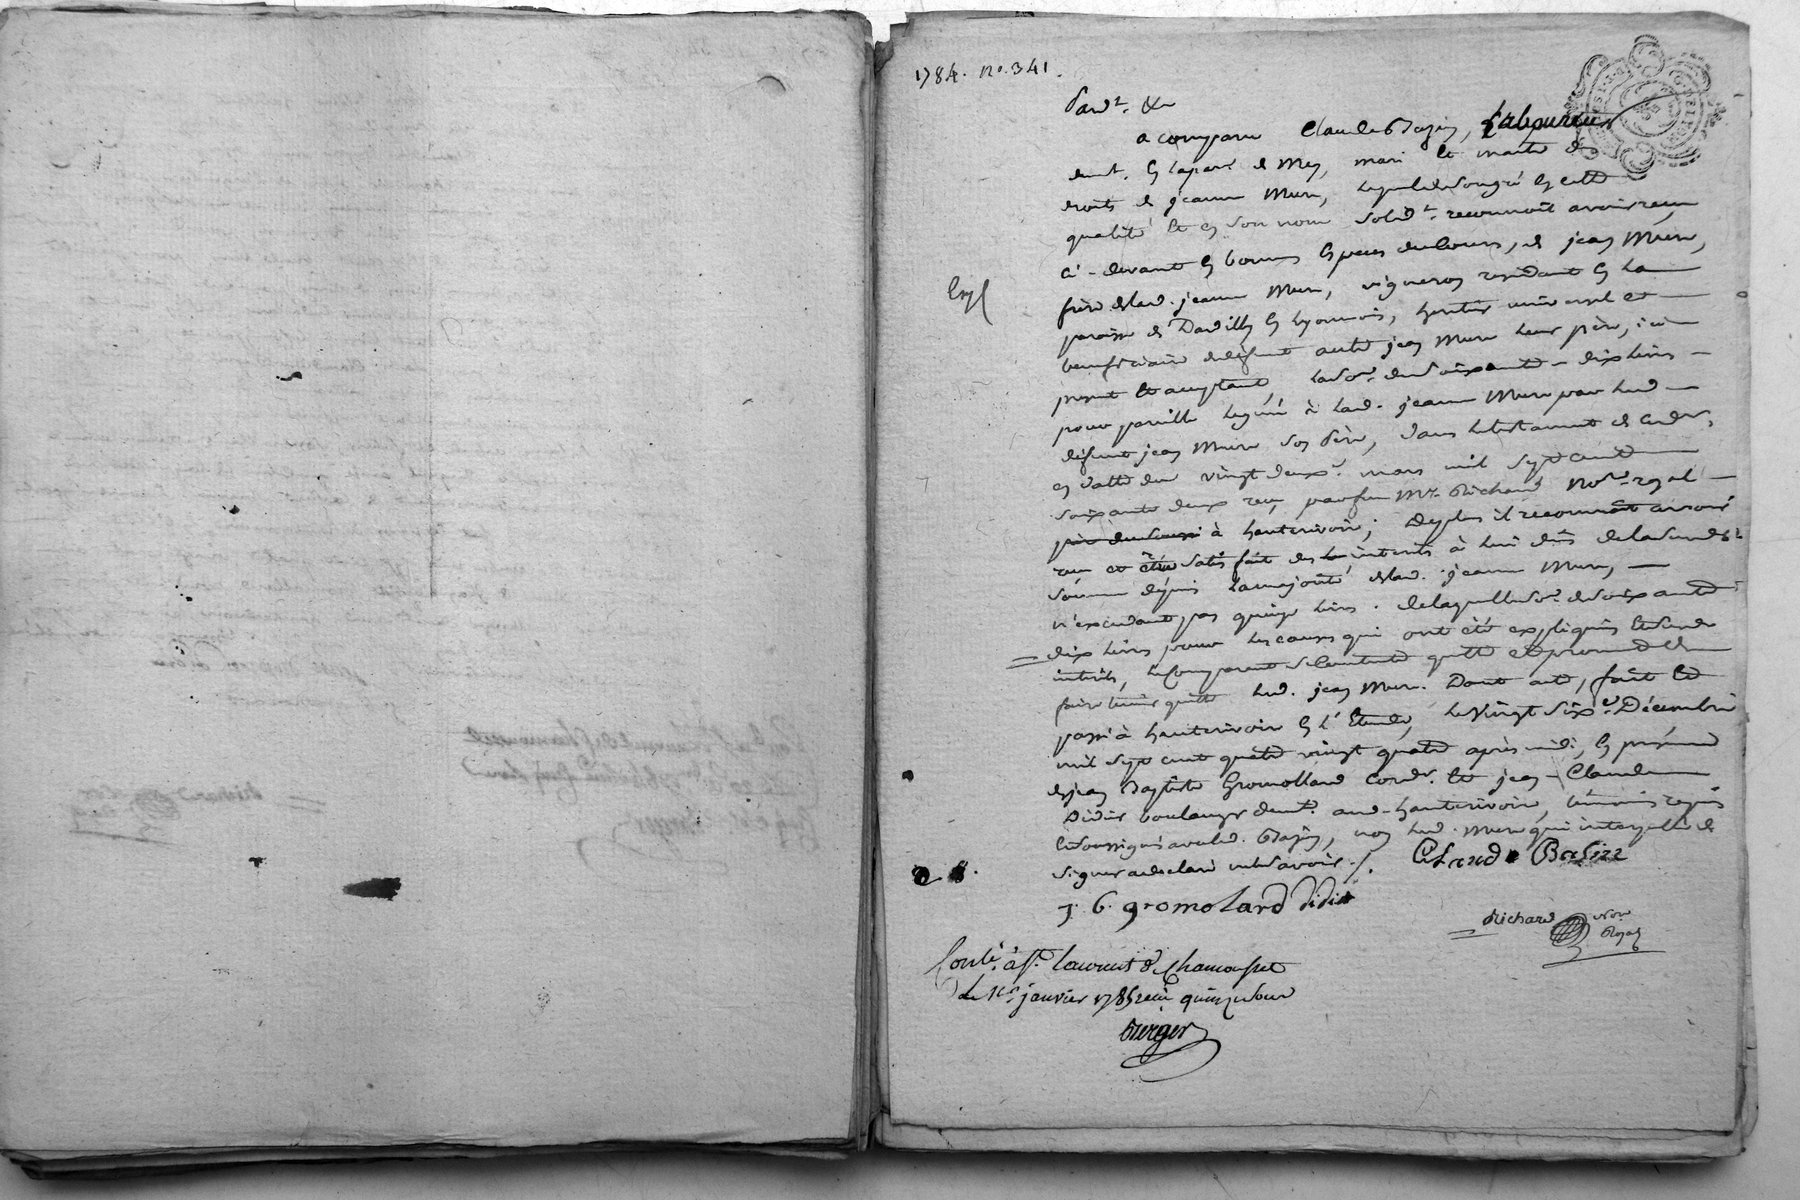 1784. no. 341.
Pardt. &c
a comparu Claude Bazin, Laboureur
demt. en la parr. de Mey, mari et maitre des
droits de jeanne Mure, lequel de son gré en cette
qualité et en son nom solidt. reconnoit avoir reçu
ci-devant en bonnes espèces du cours, de jean Mure,
frère de lad. jeanne Mure, vigneron residant en la
paroisse de Dardilly en Lyonnois, heritier universel et
beneficiaire de défunt autre jean Mure leur père, ici
present et acceptant, la somme de soixante-dix livres
pour pareille leguée à lad. jeanne Mure par led.
défunt jean Mure son père, dans le testament de ce dr,
en datte du vingt deuxe. mars mil sept cent
soixante deux reçu par feu Me. Richard Nore. royal
à hauterivoire; De plus il reconnoit avoir
reçu et été satisfait des interets à lui dûs de la susde.
somme depuis la majorité de lad. jeanne Mure,
n'excedant pas quinze livres. de laquelle some. de soixante
dix livres pour les causes qui ont été expliquées et desd.
interets, le comparant se contente quitte et promet de
faire tenir quitte led. jean Mure. Dont acte, fait et
passé à hauterivoire en l'Etude, le vingt sixe. Décembre
mil sept cent quatre vingt quatre après midi, en présence
de jean Baptiste Gromollard cordr. et jean-Claude
Didier boulanger demts. aud. hauterivoire, témoins requis
et soussignés avec led. Bazin, non led. Mure qui interpellé de
signer a déclaré ne le savoir./.
Claude Basin
J. B. gromolard didier
Richard Nore. Royal
Conlé. à St. Laurent de Chamousset
le 1er. janvier 1785 reçu quinze sous
Berger